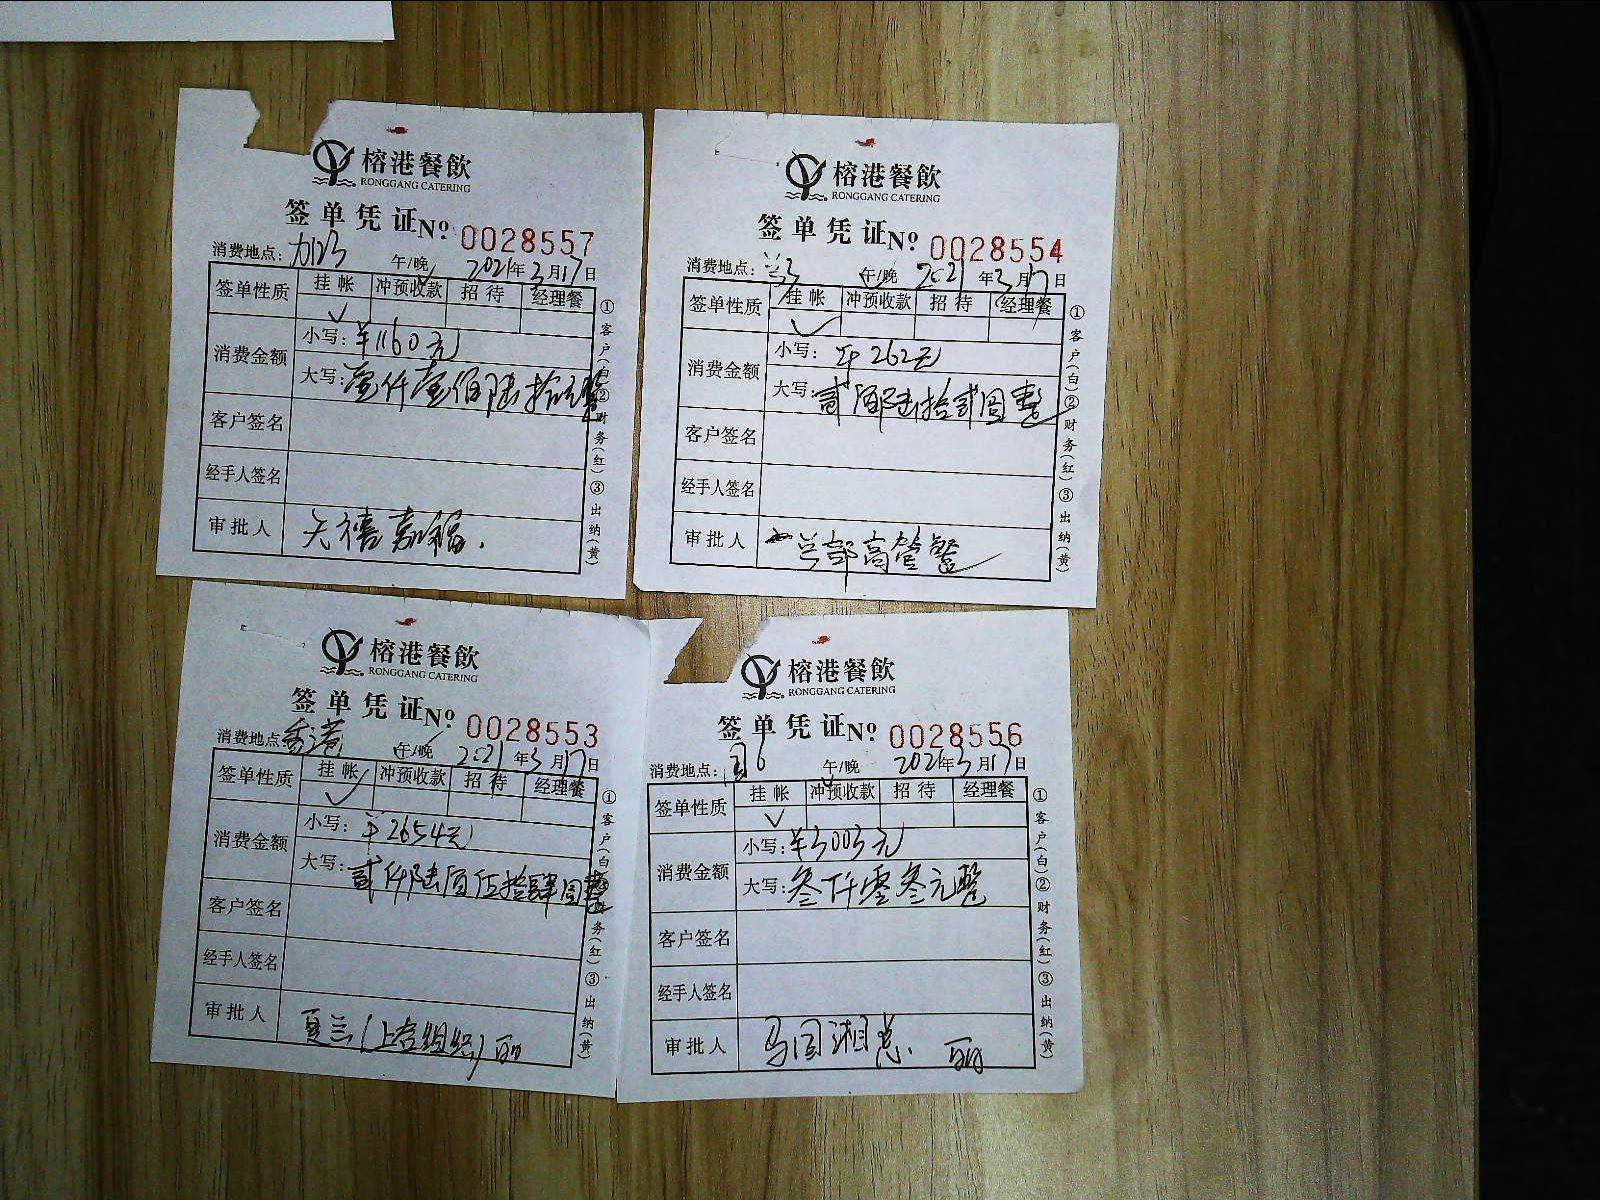 榕港餐飲
RONGGANG CATERING
签单凭证 Nº 0028557
消费地点: 午/晚 2021年3月17日
签单性质 挂帐 冲预收款 招待 经理餐
✓
消费金额 小写: ¥1160元
大写: 壹仟壹佰陆拾元整
客户签名
经手人签名
审批人 天禧嘉福.
①客户(白)②财务(红)③出纳(黄)
榕港餐飲
RONGGANG CATERING
签单凭证 Nº 0028554
消费地点: 午/晚 2021年3月17日
签单性质 挂帐 冲预收款 招待 经理餐
✓
消费金额 小写: ¥262元
大写: 贰佰陆拾贰圆整
客户签名
经手人签名
审批人 总部高管餐
①客户(白)②财务(红)③出纳(黄)
榕港餐飲
RONGGANG CATERING
签单凭证 Nº 0028553
消费地点: 香港 午/晚 2021年3月17日
签单性质 挂帐 冲预收款 招待 经理餐
✓
消费金额 小写: ¥2654元
大写: 贰仟陆佰伍拾肆圆整
客户签名
经手人签名
审批人 夏兰(上官组织)
①客户(白)②财务(红)③出纳(黄)
榕港餐飲
RONGGANG CATERING
签单凭证 Nº 0028556
消费地点: 午/晚 2021年3月17日
签单性质 挂帐 冲预收款 招待 经理餐
✓
消费金额 小写: ¥3003元
大写: 叁仟零叁元整
客户签名
经手人签名
审批人 马国湘总.
①客户(白)②财务(红)③出纳(黄)